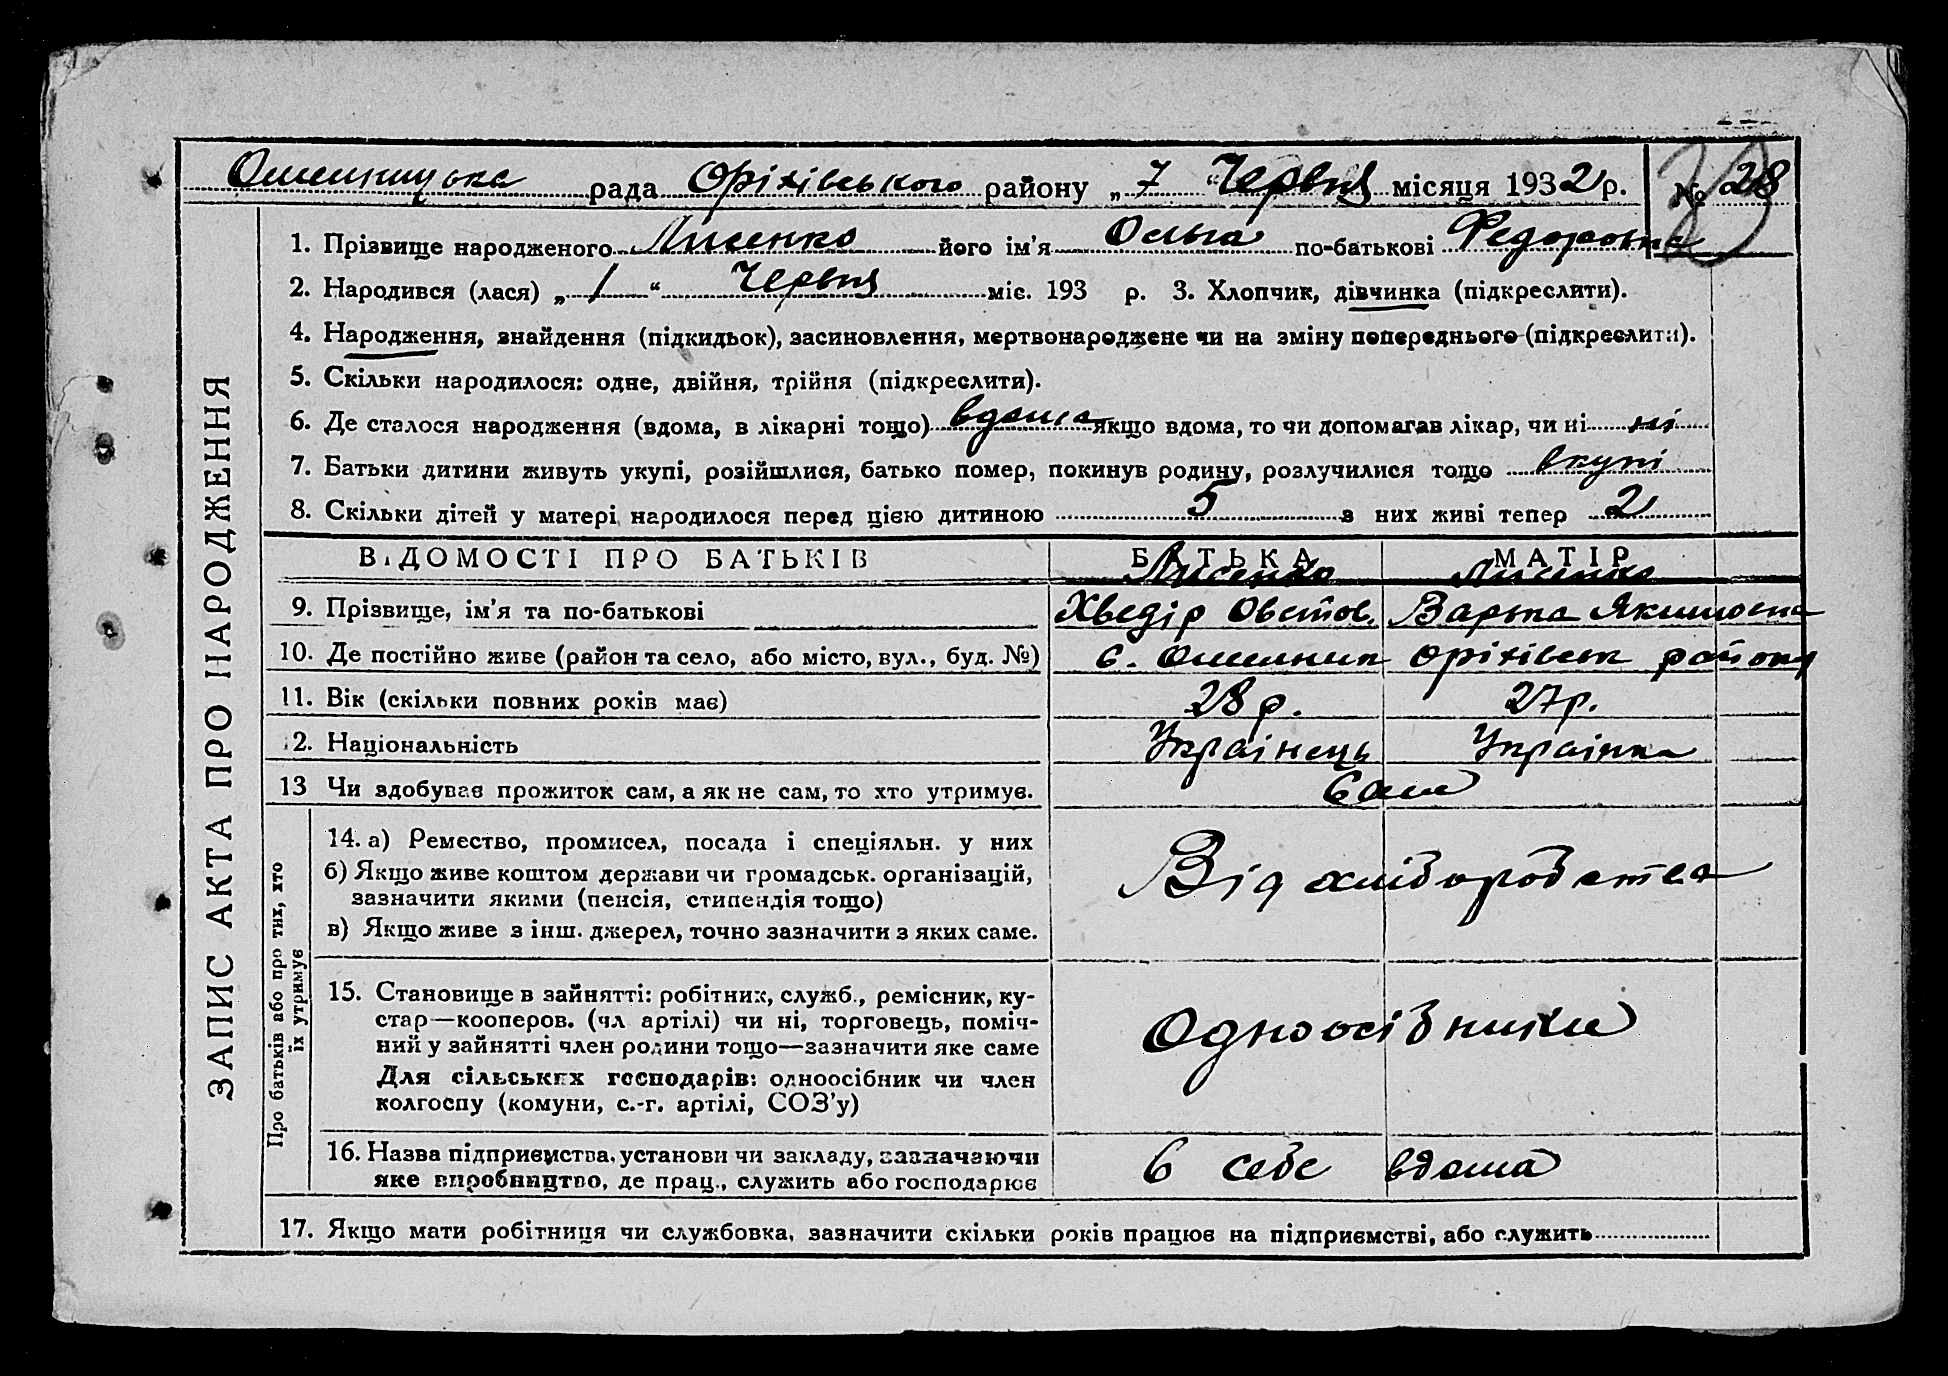 Омельницька рада Оріхівського району „7“ Червня місяця 1932 р. № 28
ЗАПИС АКТА ПРО НАРОДЖЕННЯ
1. Прізвище народженого Лисенко його ім’я Ольга по-батькові Федоровна
2. Народився (лася) „1“ Червня міс. 193 р. 3. Хлопчик, дівчинка (підкреслити).
4. Народження, знайдення (підкидьок), засиновлення, мертвонароджене чи на зміну попереднього (підкреслити).
5. Скільки народилося: одне, двійня, трійня (підкреслити).
6. Де сталося народження (вдома, в лікарні тощо) вдома якщо вдома, то чи допомагав лікар, чи ні ні
7. Батьки дитини живуть укупі, розійшлися, батько помер, покинув родину, розлучилися тощо вкупі
8. Скільки дітей у матері народилося перед цією дитиною 5 з них живі тепер 2
ВІДОМОСТІ ПРО БАТЬКІВ БАТЬКА МАТІР
Лисенко Лисенко
9. Прізвище, ім’я та по-батькові Хведір Овстов. Варька Якимовна
10. Де постійно живе (район та село, або місто, вул., буд. №) с. Омельник Оріхівськ району
11. Вік (скільки повних років має) 28 р. 27 р.
12. Національність Українець Українка
13 Чи здобував прожиток сам, а як не сам, то хто утримує. Сами
Про батьків або про тих, хто
їх утримує
14. а) Ремество, промисел, посада і спеціяльн. у них
б) Якщо живе коштом держави чи громадськ. організацій,
зазначити якими (пенсія, стипендія тощо)
в) Якщо живе з інш. джерел, точно зазначити з яких саме.
Від хліборобства
15. Становище в зайнятті: робітник, служб., ремісник, ку-
стар—кооперов. (чл артілі) чи ні, торговець, поміч-
ний у зайнятті член родини тощо—зазначити яке саме
Для сільських господарів: одноосібник чи член
колгоспу (комуни, с.-г. артілі, СОЗ’у)
Одноосібники
16. Назва підприємства, установи чи закладу, зазначаючи
яке виробництво, де прац., служить або господарює
в себе вдома
17. Якщо мати робітниця чи службовка, зазначити скільки років працює на підприємстві, або служить